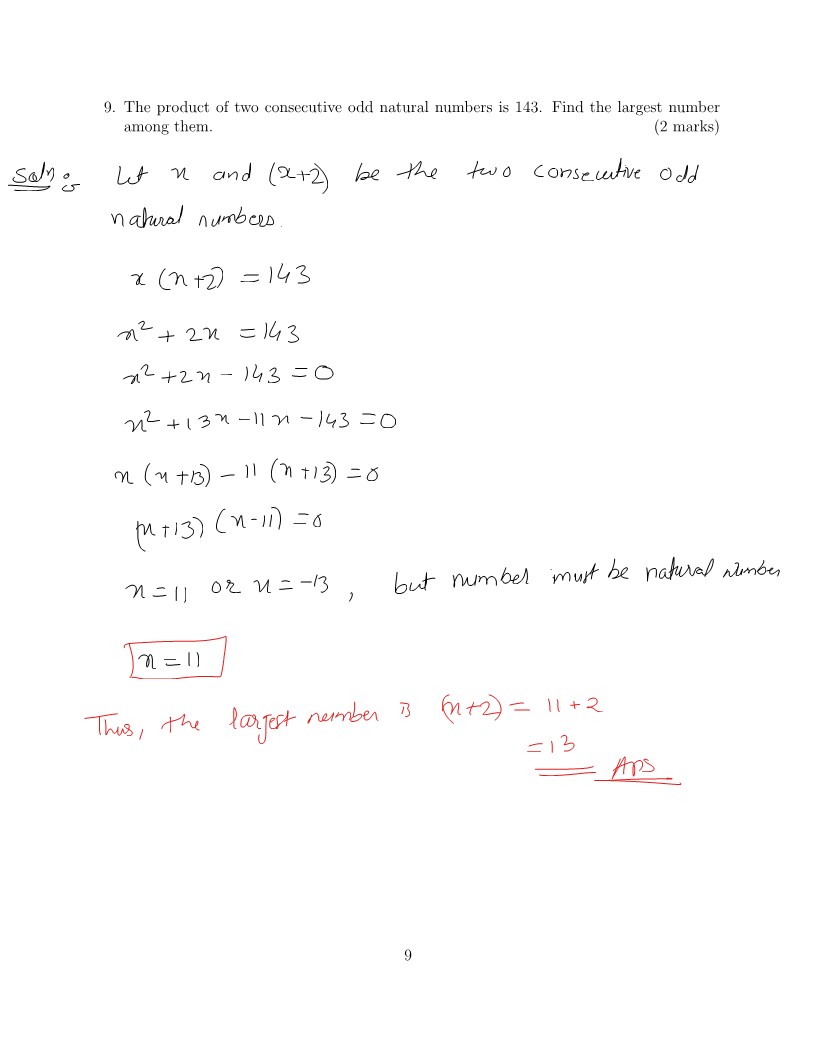 9. The product of two consecutive odd natural numbers is 143. Find the largest number
among them. (2 marks)
Soln: Let x and (x+2) be the two consecutive odd
natural numbers.
x (x+2) = 143
x² + 2x = 143
x² + 2x - 143 = 0
x² + 13x - 11x - 143 = 0
x (x+13) - 11 (x+13) = 0
(x+13) (x-11) = 0
x = 11 or x = -13, but number must be natural number
x = 11
Thus, the largest number is (x+2) = 11+2
= 13
Ans
9